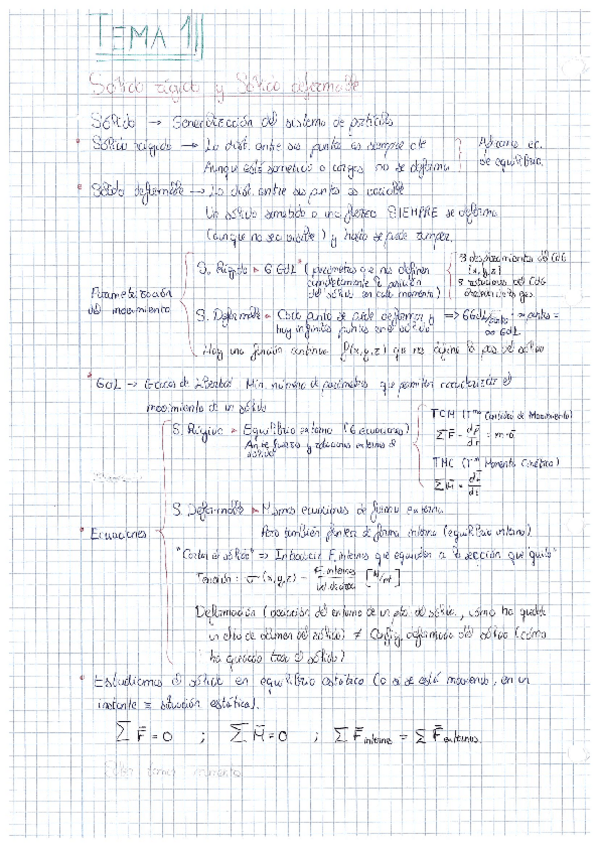 TEMA 1
Sólido rígido y Sólido deformable
Sólido → Generalización del sistema de partículas
• Sólido rígido → La dist. entre sus puntos es siempre cte
Aunque esté sometido a cargas no se deforma
ec. de equilibrio
• Sólido deformable → La dist. entre sus puntos es variable
Un sólido sometido a una fuerza SIEMPRE se deforma
(aunque no sea visible) y hasta se puede romper.
Parametrización del movimiento
S. Rígido 6 GDL* (parámetros que nos definen completamente la posición del sólido en cada momento)
3 desplazamientos del CDG (x,y,z)
3 rotaciones del CDG
S. Deformable Cada punto se puede deformar y hay infinitos puntos en el sólido ⇒ 6GDL/punto · ∞ puntos = ∞ GDL
Hay una función continua f(x,y,z) que nos define la pos del sólido
* GDL → Grados de Libertad Mín. número de parámetros que permiten caracterizar el
movimiento de un sólido
• Ecuaciones
S. Rígido Equilibrio externo (6 ecuaciones)
TCM (Tma Cantidad de Movimiento)
ΣF̄ = dp̄/dt = m·ā
TMC (Tma Momento Cinético)
S. Deformable Mismas ecuaciones de forma externa
Pero también plantea de forma interna (equilibrio interno)
"Cortar el sólido" ⇒ Introducir F. internas que equivalen a "la sección que quito"
Tensión: σ(x,y,z) = F. internas
Deformación (variación del entorno de un pto del sólido, cómo ha quedado
un cubo de volumen del sólido) ≠ Config. deformada del sólido (cómo
ha quedado todo el sólido)
• Estudiamos el sólido en equilibrio estático (o si se está moviendo, en un
instante = situación estática).
ΣF̄ = 0 ; ΣM̄ = 0 ; ΣF̄ internas = ΣF̄ externas